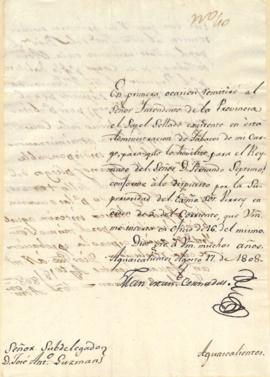 En primera ocacion remitiré al
Señor Intendente de la Provincia
el Papel Sellado existente en esta
Administracion de Tabacos de mi Car-
go, para que lo havilite para el Rey-
nado del Señor D. Fernando Septimo,
conforme á lo dispuesto por la Su-
perioridad del Exmô. Sôr. Virrey en
de 2. del Corriente, que Vm.
me inserta en oficio de 16. del mismo.
Dios gûe. á Vm. muchos años.
Aguascalientes Agosto 17. de 1808.
Señor Subdelegado
D. José Antº. Guzman
Aguascalientes.